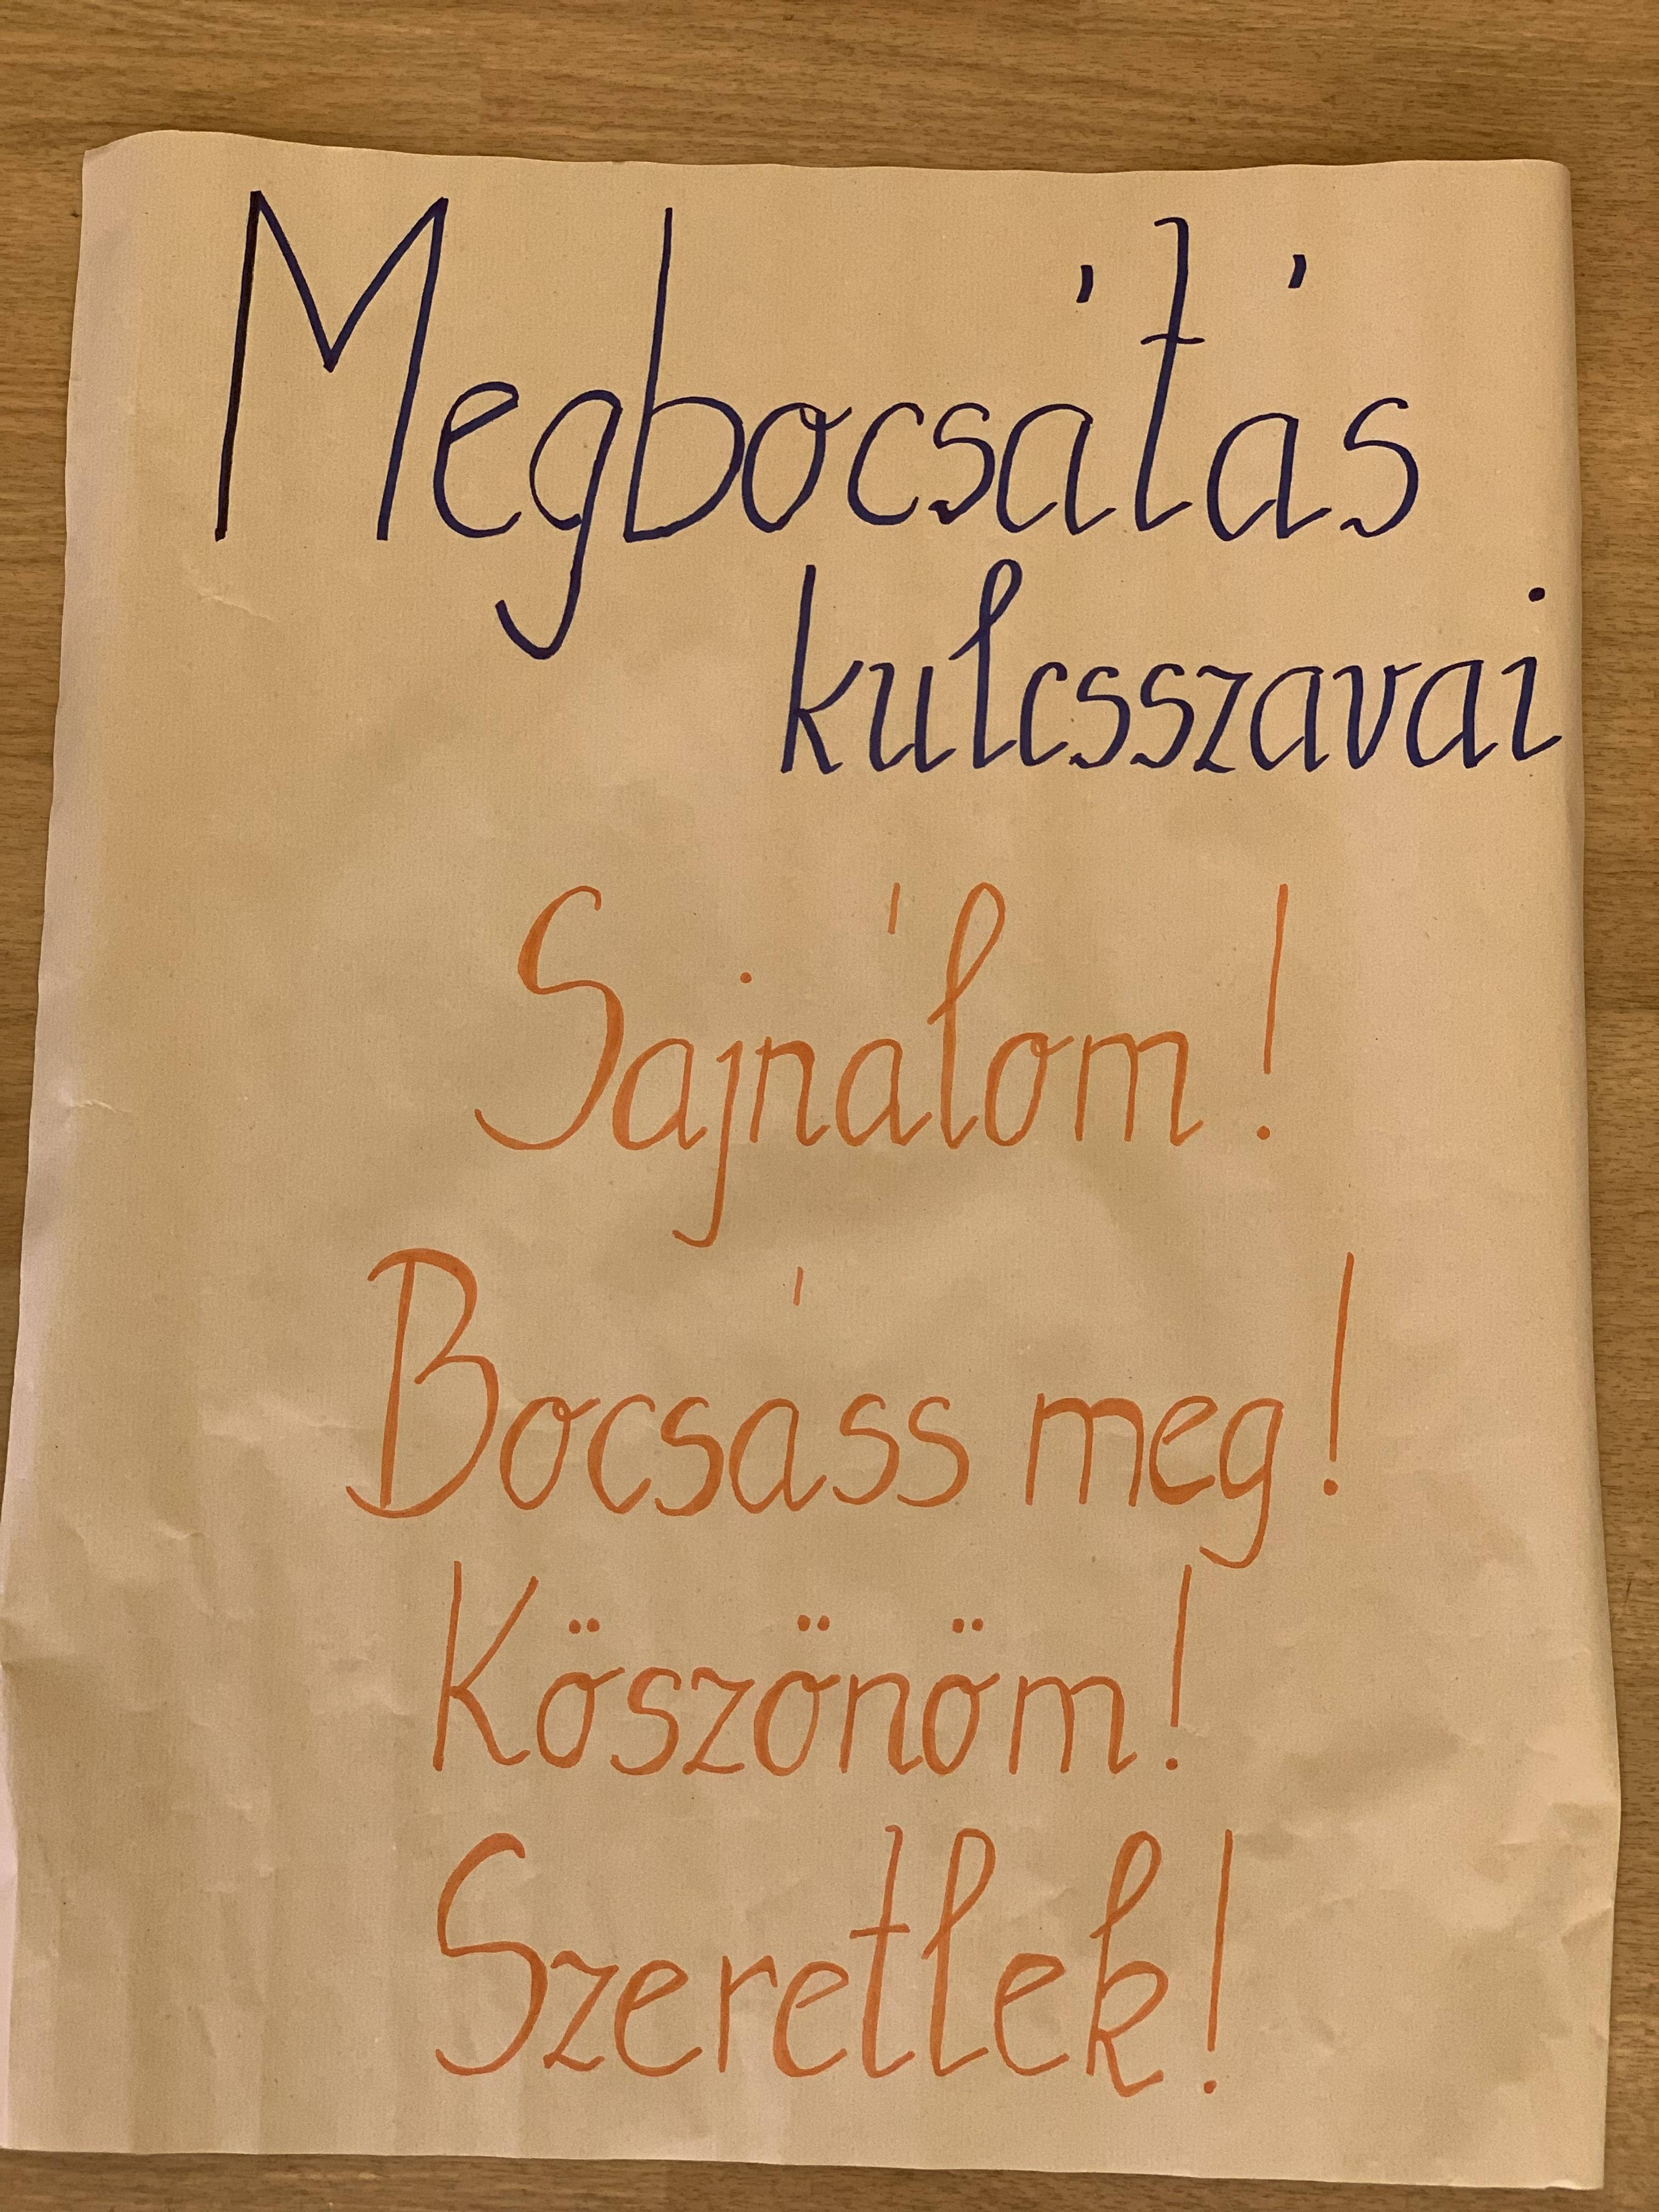 Megbocsátás
kulcsszavai
Sajnálom!
Bocsáss meg!
Köszönöm!
Szeretlek!